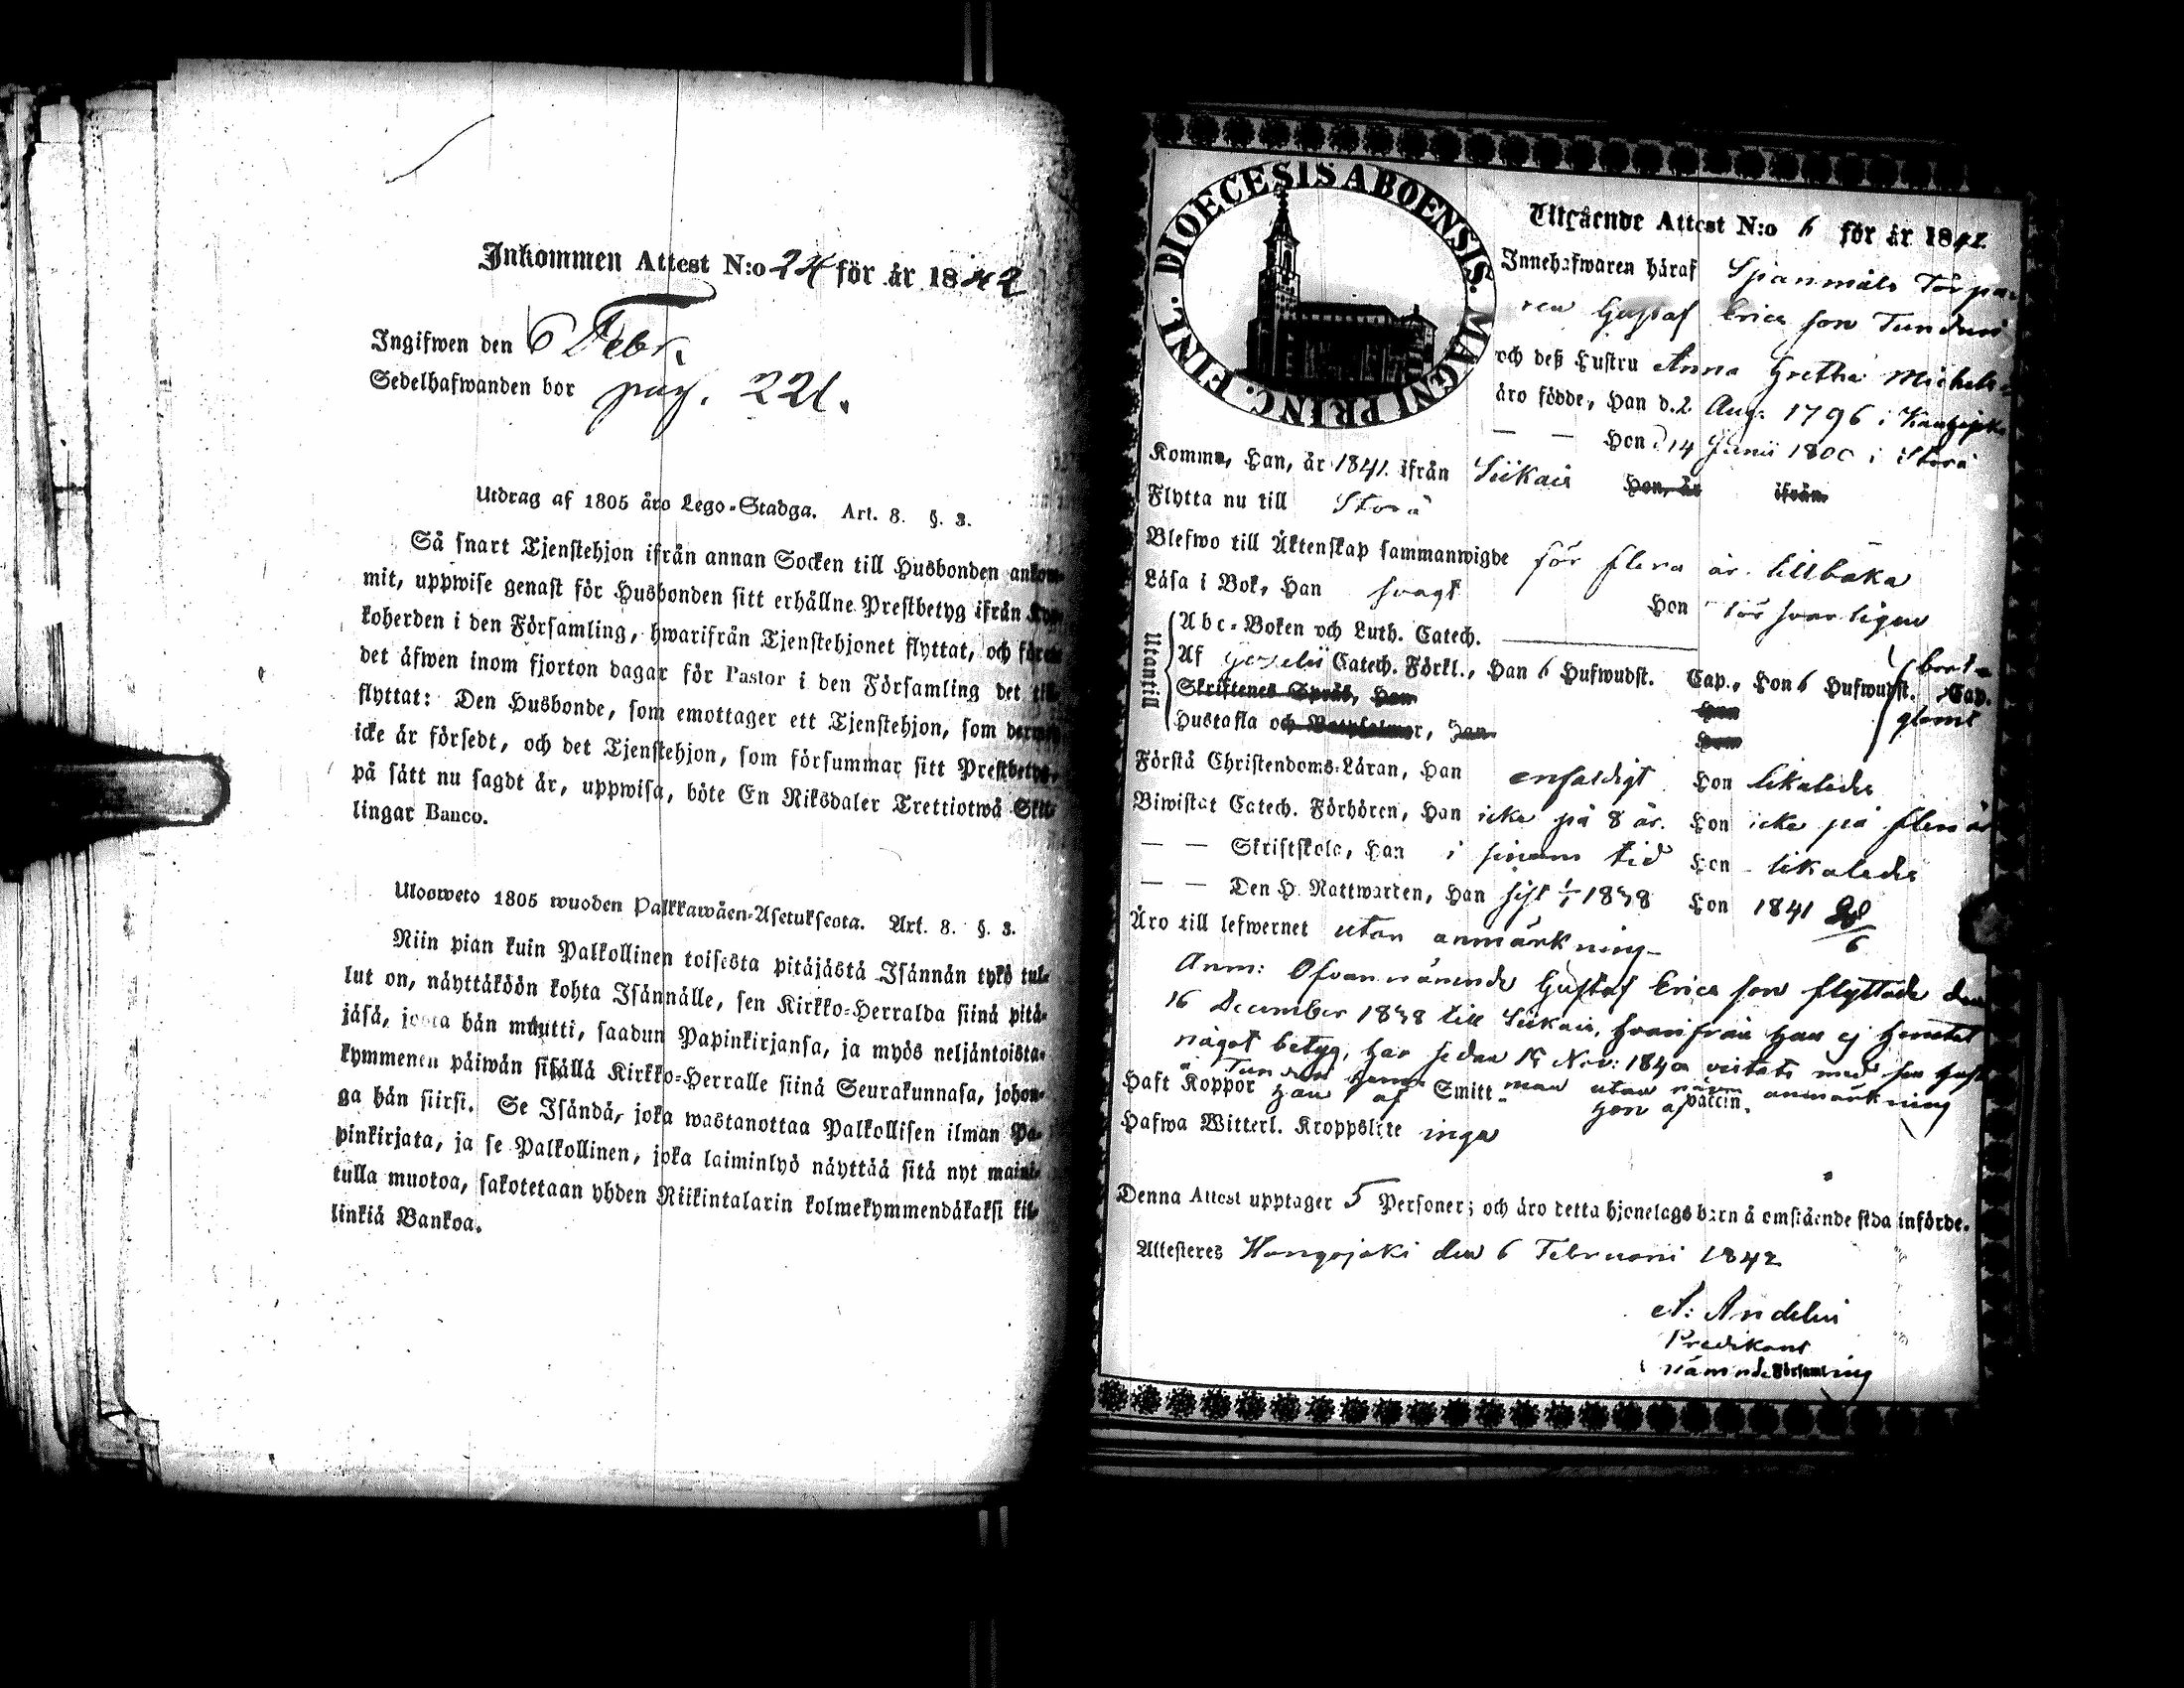 Inkommen Attest N:o 24 för år 1842
Ingifwen den 6 Febr.
Sedelhafwanden bor pag. 221.
Utdrag af 1805 års Lego-Stadga. Art. 8. §. 3.
Så snart Tjenstehjon ifrån annan Socken till Husbonden ankom-
mit, uppwise genast för Husbonden sitt erhållne Prestbetyg ifrån
koherden i den Församling, hwarifrån Tjenstehjonet flyttat, och
det äfwen inom fjorton dagar för Pastor i den Församling det
flyttat: Den Husbonde, som emottager ett Tjenstehjon, som
icke är försedt, och det Tjenstehjon, som försummar sitt Prestbetyg,
på sätt nu sagdt är, uppwisa, böte En Riksdaler Trettiotwå Skil-
lingar Banco.
Ulosweto 1805 wuoden Palkkawäen-Asetuksesta. Art. 8. §. 3.
Niin pian kuin Palkollinen toisesta pitäjästä Isännän tykö tul-
lut on, näyttäköön kohta Isännälle, sen Kirkko-Herralda siinä pitä-
jäsä, josta hän muutti, saadun Papinkirjansa, ja myös neljäntoista-
kymmenen päiwän sisällä Kirkko-Herralle siinä Seurakunnasa, johon-
ga hän siirsi. Se Isändä, joka wastanottaa Palkollisen ilman Pa-
pinkirjata, ja se Palkollinen, joka laiminlyö näyttää sitä nyt maini-
tulla muotoa, sakotetaan yhden Riikintalarin kolmekymmendäkaksi kil-
linkiä Bankoa.
DIOECESIS ABOENSIS. MAGNI PRINC. FINL.
Utgående Attest N:o 6 för år 1842
Innehafwaren häraf Spanmåls Torpa
ren Gustaf Erics son
och deß Hustru Anna Gretha Michels
äro födde, Han d. 2 Aug: 1796 i
— — Hon d 14 Junii 1800 i Storå
Komme, Han, år 1841. ifrån Siikais Hon, år ifrån
Flytta nu till Storå
Blefwo till Äktenskap sammanwigde för flera år tillbaka
Läsa i Bok, Han svagt Hon försvarligen
Utantill
Abc-Boken och Luth. Catech.
Af Gezelii Catech. Förkl., Han 6 Hufwudst. Cap., Hon 6 Hufwudst. Cap. bort-
glömt
Skriftenes Språk, Han Hon
Hustafla och r, Han Hon
Förstå Christendoms-Läran, Han enfaldigt Hon likaledes
Biwistat Catech. Förhören, Han icke på 8 år. Hon icke på flera år
— — Skriftskola, Han i sinom tid Hon likaledes
— — Den H. Nattwarden, Han sist 1838 Hon 1841
Äro till lefwernet utan anmärkning
Anm: Ofvannämnde Gustaf Erics son flyttade den
16 December 1838 till Siikais, hvarifrån han ej hemtat
något betyg, har sedan 15 Nov: 1840 vistats med sin
hemman utan någon anmärkning
Haft Koppor Han af Smitt- Hon af Vaccin.
Hafwa Witterl. Kroppslyte inga
Denna Attest upptager 5 Personer; och äro detta hjonelags barn å omstående sida införde.
Attesteres Kangojoki den 6 Februari 1842
A: Andelin
Predikant
i nämnde Församling